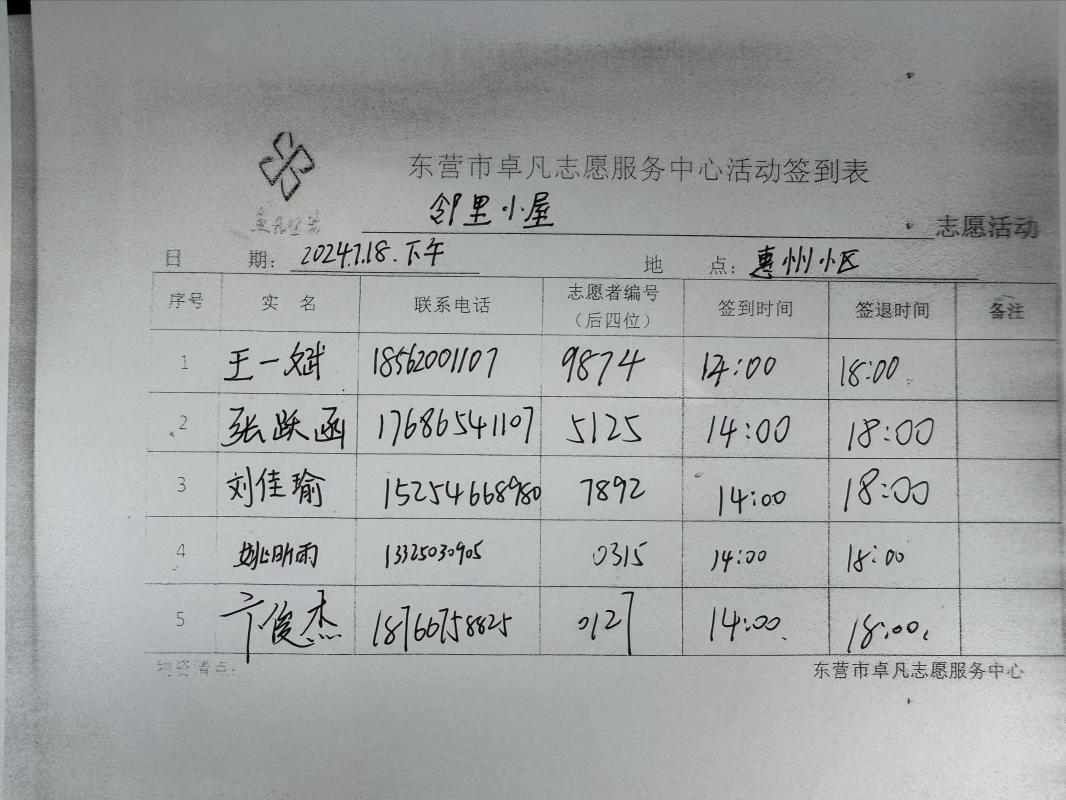 东营市卓凡志愿服务中心活动签到表
邻里小屋 志愿活动
日 期: 2024.7.18.下午 地 点: 惠州小区
序号 实 名 联系电话 志愿者编号(后四位) 签到时间 签退时间 备注
1 王一斌 18562001107 9874 14:00 18:00
2 张跃函 17686541107 5125 14:00 18:00
3 刘佳瑜 15254668980 7892 14:00 18:00
4 姚昕雨 13325030905 0315 14:00 18:00
5 卞俊杰 18766758825 0127 14:00 18:00
物资清点: 东营市卓凡志愿服务中心